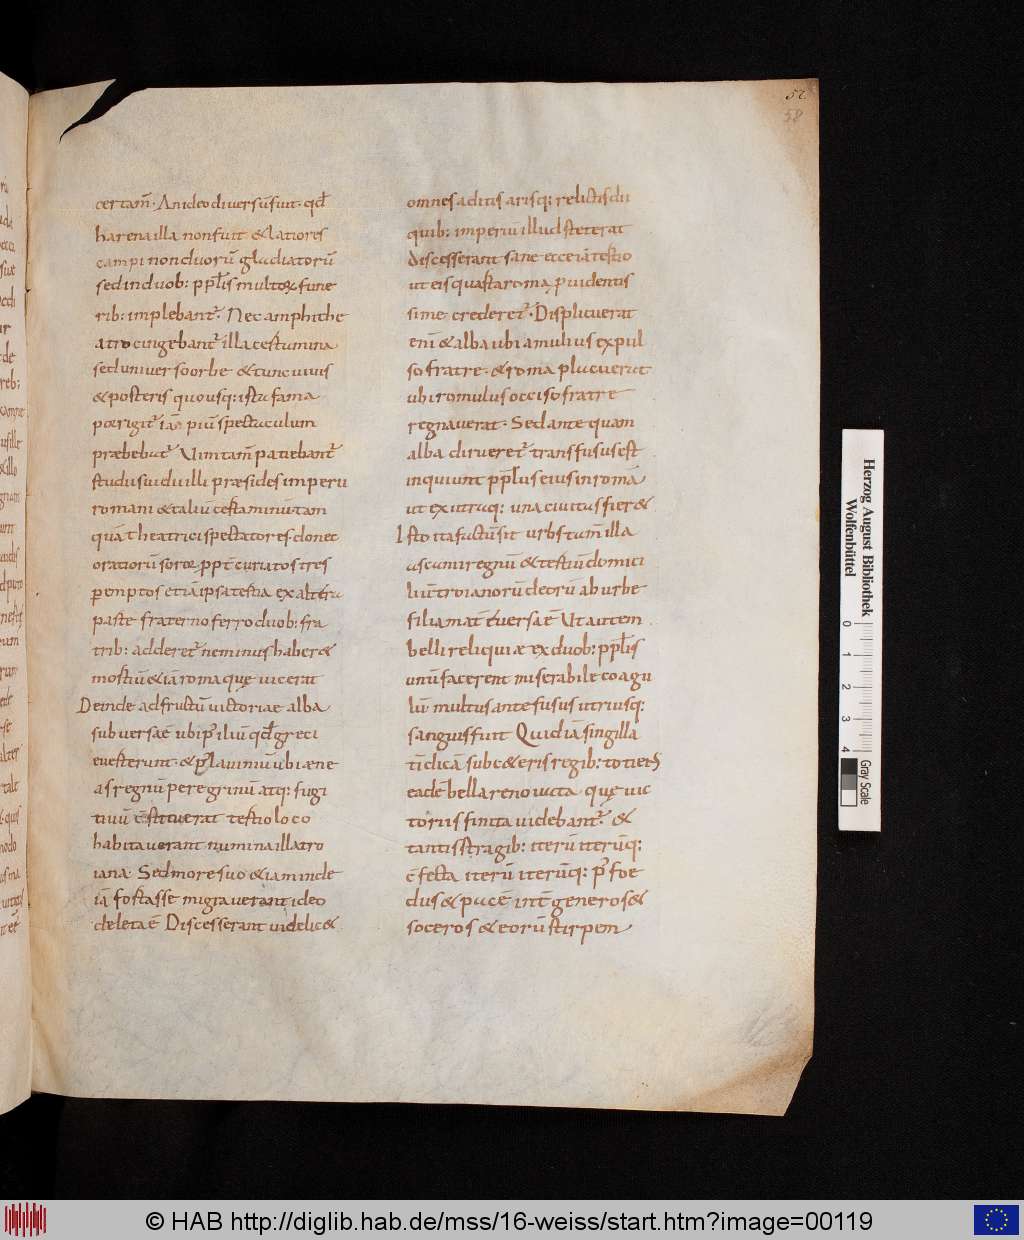 52
58
certam̄· An ideo diversū fuit· qđ
harena illa non fuit & latiores
campi non duorū gladiatorū
sed in duob: ppl̄is multorꝝ fune
rib: implebant᷑. Nec amphithe
atro cingebant᷑ illa certamina
sed universo orbe & tunc vivis
& posteris quousq: ista fama
porrigit᷑ impiū spectaculum
præbebat᷑ Vim tam̄ patiebant᷑
studii sui dii illi præsides imperii
romani & taliū certaminū tam
quā theatrici spectatores. donec
oratiorū soror ppt̄ curiatos tres
peremptos etiā ipsa tertia ex altera
parte fraterno ferro duob: fra
trib: adderet᷑ ne minus haber&
mortiū & iā roma quę vicerat
Deinde ad fructū victoriae alba
subversa ē ubi p᷑ iliū qđ greci
everterunt· & p᷑ laviniū ubi æne
as regnū peregrinū atq: fugi
tivū cstituerat tertio loco
habitaverant numina illa tro
iana Sed more suo & iam inde
iā fortasse migraverant ideo
deleta ē Discesserant videlic&
omnes aditis arisq: relictis dii
quib: imperiū illud steterat
discesserant sane ecce iā tertio
ut eis quarta roma providentis
sime crederet᷑· Displicuerat
enī & alba ubi amulius expul
so fratre· & roma placuerat
ubi romulus occiso fratre
regnaverat· Sed ante quam
alba dirueret᷑ transfusus est
inquiunt ppl̄us eius in romā
ut ex utraq: una civitas fier&
Isto ita factū sit urbs tam̄ illa
ascanii regnū & tertiū domici
liū troianorū deorū ab urbe
filia mat̄ eversa ē Ut autem
belli reliquiæ ex duob: ppl̄is
unū facerent miserabile coagu
lū multus ante fusus utriusq:
sanguis fuit Quid iā singilla
tī dicā sub c&eris regib: totiens
eadē bella renovata quę vic
toriis finita videbant᷑· &
tantis stragib: iterū iterūq:
cfecta iterū iterūq: p᷑ foe
dus & pacē int̄ generos &
soceros & eorū stirpem
Herzog August Bibliothek
Wolfenbüttel
0 1 2 3 4
Gray Scale
© HAB http://diglib.hab.de/mss/16-weiss/start.htm?image=00119